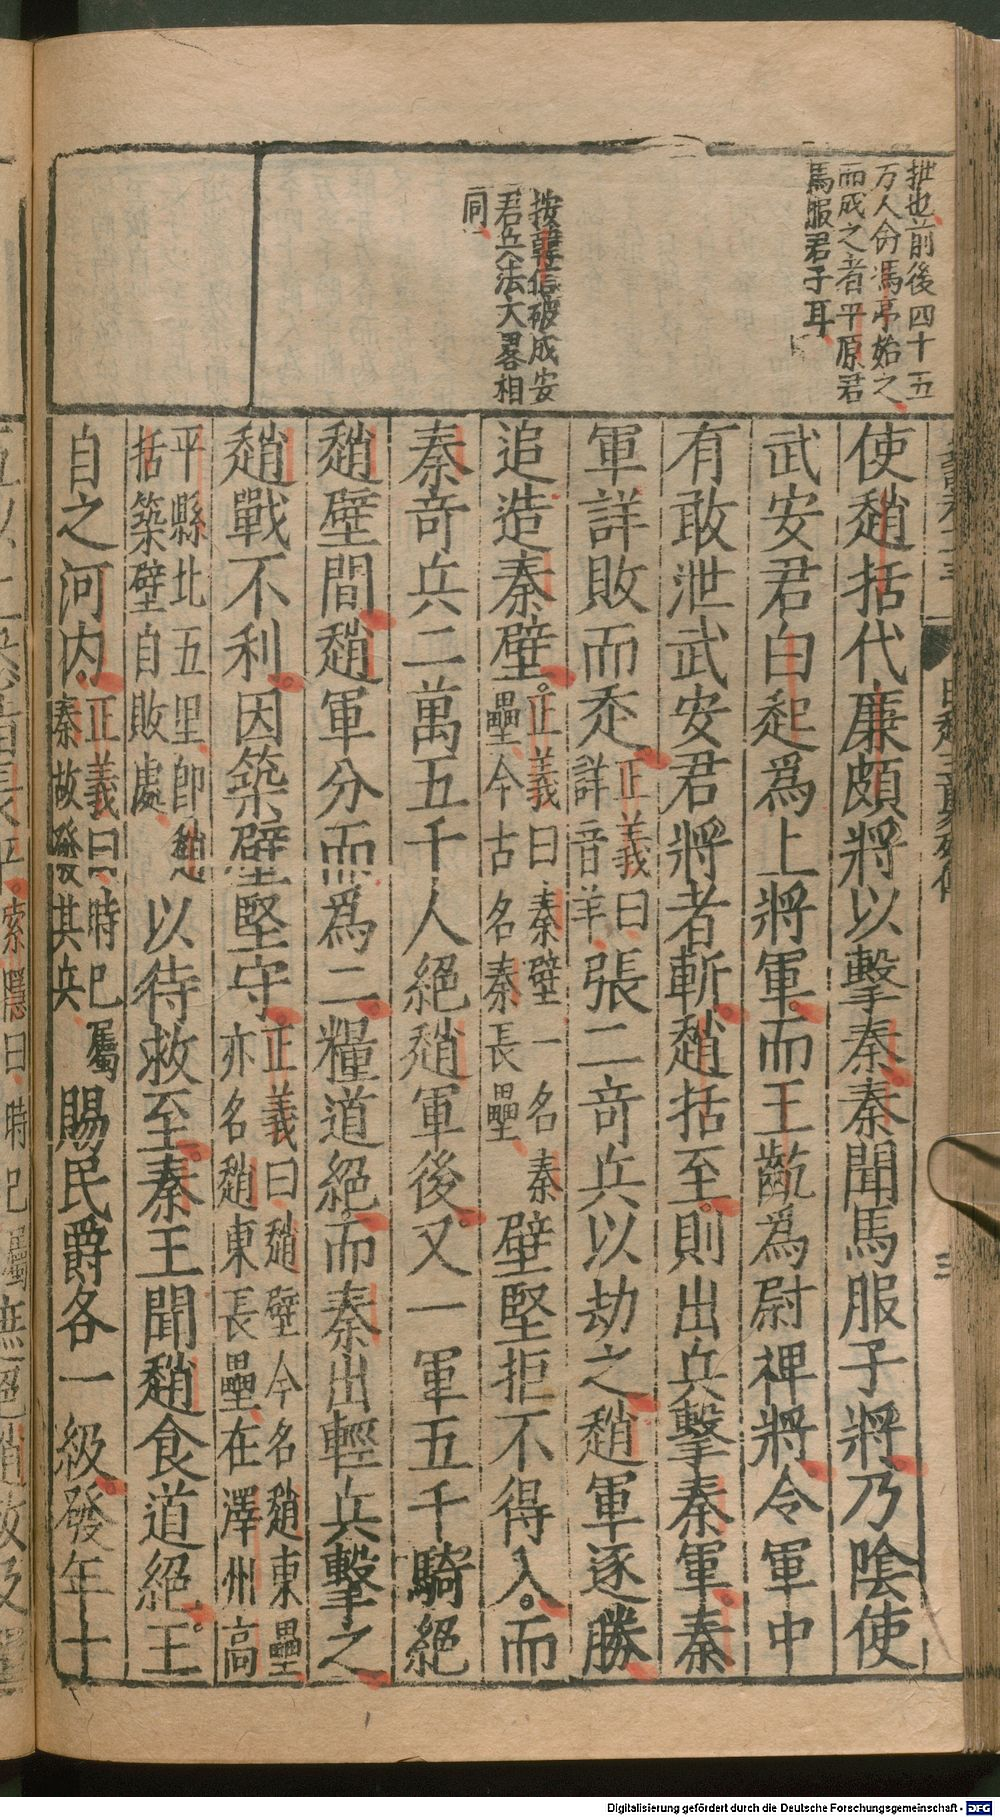 抴也前後四十五
万人命馮亭始之
而成之者平原君
馬服君子耳
按韓信破成安
君兵法大畧相
同
使趙括代廉頗將以擊秦秦聞馬服子將乃陰使
武安君白起爲上將軍而王齕爲尉裨將令軍中
有敢泄武安君將者斬趙括至則出兵擊秦軍秦
軍詳敗而走正義曰詳音羊張二竒兵以劫之趙軍逐勝
追造秦壁正義曰秦壁一名秦壘今古名秦長壘壁堅拒不得入而
秦竒兵二萬五千人絕趙軍後又一軍五千騎絕
趙壁間趙軍分而爲二糧道絕而秦出輕兵擊之
趙戰不利因築壁堅守正義曰趙壁今名趙東壘亦名趙東長壘在澤州高
平縣北五里卽趙括築壁自敗處以待救至秦王聞趙食道絕王
自之河内正義曰時已屬秦故發其兵賜民爵各一級發年十
Digitalisierung gefördert durch die Deutsche Forschungsgemeinschaft - DFG